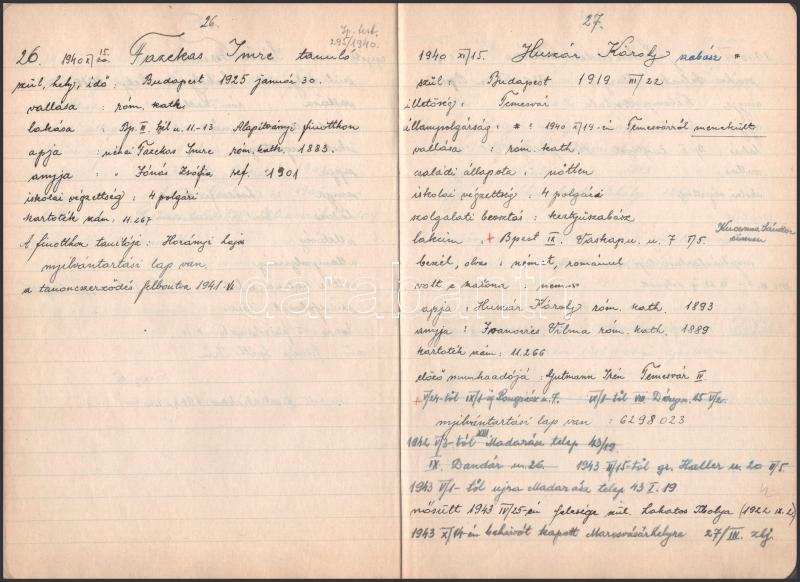 26.
Ip. test.
295/1940.
26. 1940 X/15. Fazekas Imre tanuló
szül. hely, idő: Budapest 1925 január 30.
vallása: róm. kath.
lakása: Bp. II. u. 11-13 Alapítványi fiúotthon
apja: néhai Fazekas Imre róm. kath. 1883.
anyja: " Jónás Zsófia ref. 1901
iskolai végzettség: 4 polgári
kartoték szám: 11.267
A fiúotthon tanítója: Horányi Lajos
nyilvántartási lap van.
a tanoncszerződés felbontva 1941. VI
27.
1940 XI/15. Huszár Károly szabász *
szül: Budapest 1919 III/22
illetőség: Temesvár
állampolgárság: *: 1940 X/14-én Temesvárról menekült
vallása: róm. kath
családi állapota: nőtlen
iskolai végzettség: 4 polgári
szolgálati beosztás: kesztyűszabász
lakcím + Bpest IX. Vaskapu u. 7 I/5.
beszél, olvas: németül, románul
volt e katona: nem
apja: Huszár Károly róm. kath. 1893
anyja: Ivanovics Vilma róm. kath. 1889
kartoték szám: 11.266
előző munkaadója: Gutmann Irén Temesvár II.
nyilvántartási lap van: 6298023
1942 V/3-tól XIII Madarász telep 43/19
IX. Dandár u. 26. 1943 III/15-től gr. Haller u. 20 II/5
1943 V/1-től újra Madarász telep 43 I. 19
nősült 1943 IV/25-én felesége szül. Lakatos Ibolya (1922 IX. 2)
1943 X/14-én behívót kapott Marosvásárhelyre 27/III. zlj.
darabanth